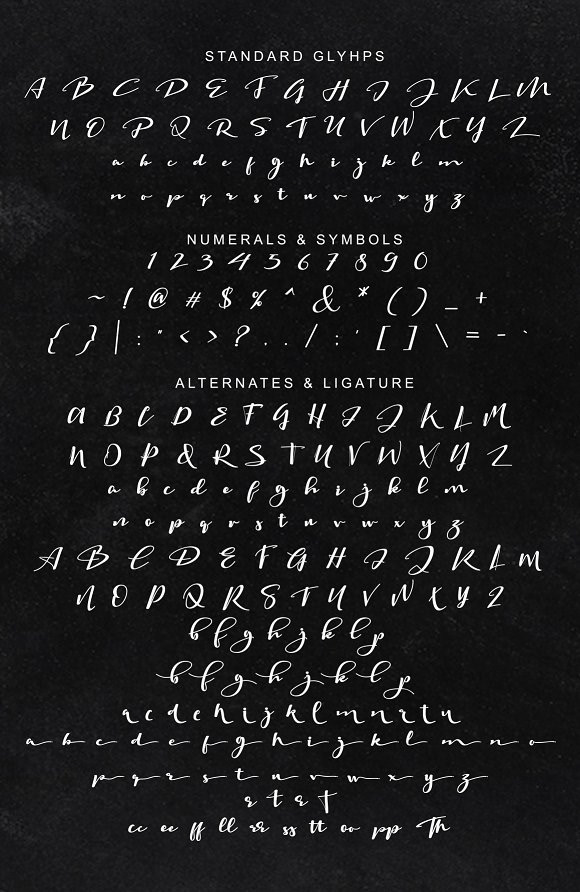 STANDARD GLYHPS
A B C D E F G H I J K L M
N O P Q R S T U V W X Y Z
a b c d e f g h i j k l m
n o p q r s t u v w x y z
NUMERALS & SYMBOLS
1 2 3 4 5 6 7 8 9 0
~ ! @ # $ % ^ & * ( ) _ +
{ } | : " < > ? . . / ; ' [ ] \ = - `
ALTERNATES & LIGATURE
A B C D E F G H I J K L M
N O P Q R S T U V W X Y Z
a b c d e f g h i j k l m
n o p q r s t u v w x y z
A B C D E F G H I J K L M
N O P Q R S T U V W X Y Z
b f g h j k l p
b f g h j k l p
a c d e h i j k l m n r t u
a b c d e f g h i j k l m n o
p q r s t u v w x y z
r t r t
cc ee ff ll rr ss tt oo pp Th